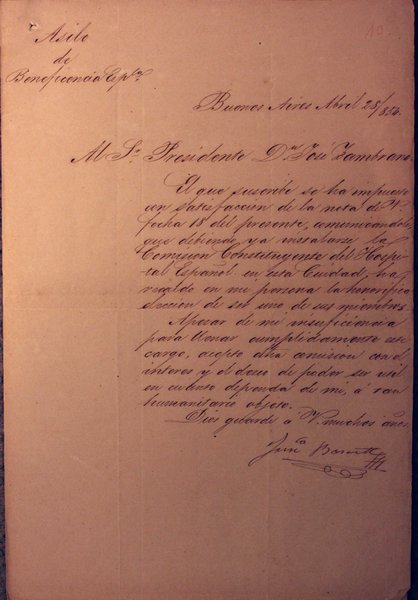 10.
Asilo
de
Beneficencia Espla.
Buenos Aires Abril 28/854.
Al Sr. Presidente Dn. José Zambrano
El que suscribe se ha impuesto
con satisfaccion de la nota de V.
fecha 18 del presente, comunicandole
que debiendo ya instalarse la
Comision Constituyente del Hospi-
tal Español en esta Ciudad, ha
recaido en mi persona la honorifica
eleccion de ser uno de sus miembros.
Apesar de mi insuficiencia
para llenar cumplidamente ese
cargo, acepto dha comision con el
interes y el deseo de poder ser util
en cuanto dependa de mi, á tan
humanitario objeto.
Dios guarde á V. muchos años.